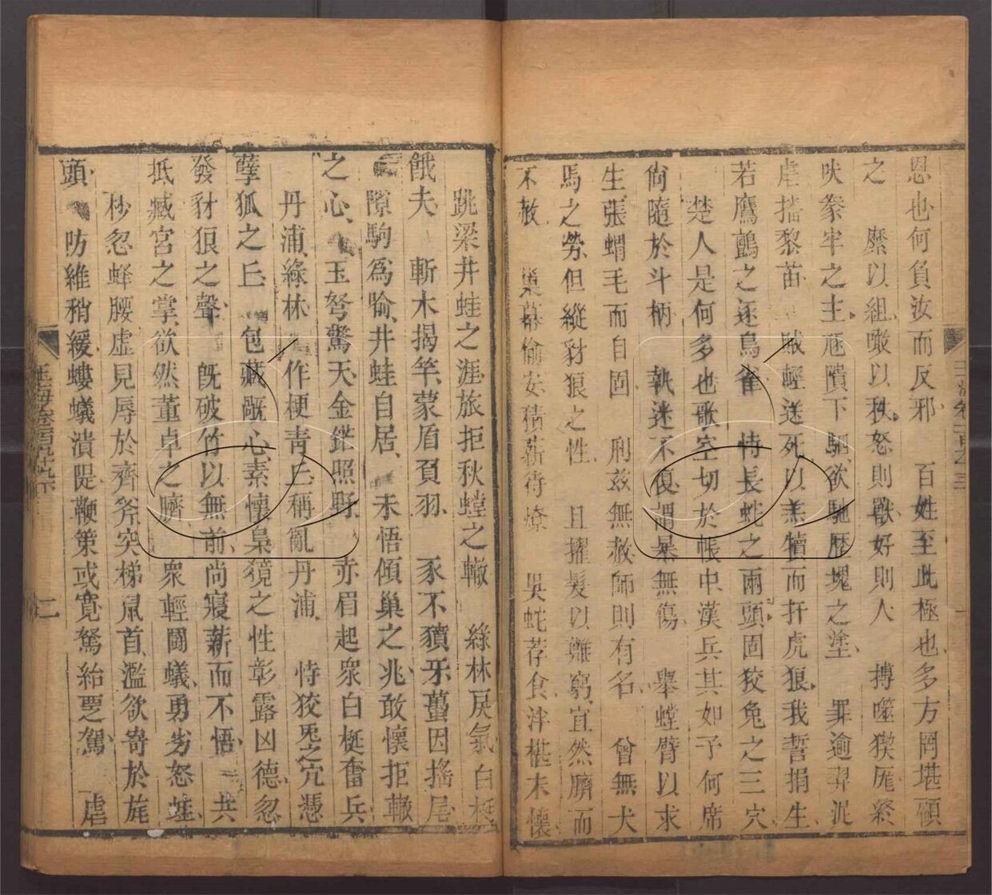 恩也何負汝而反邪 百姓至此極也多方罔堪顧
之 縻以組噬以秩怒則獸好則人 搏噬猰㺄終
吠豢牢之主 隤下駟欲馳歷塊之塗 罪逾羿泥
虐 黎苗 賊輕送死以羔犢而扞虎狼我誓捐生
若鷹鸇之逐鳥雀 恃長蛇之兩頭固狡兔之三穴
楚人是何多也歌空切於帳中漢兵其如予何席
尚隨於斗柄 執迷不復謂暴無傷 舉螳臂以求
生張蝟毛而自固 刖兹無赦師則有名 曾無犬
馬之勞但縱豺狼之性 且擢髮以難窮宜然臍而
不赦 巢幕偷安積薪待燎 吳蛇荐食泮椹未懷
跳梁井蛙之涯旅拒秋螳之轍 綠林戾氣白梃
餓夫 斬木揭竿蒙盾負羽 豕不豶牙蠆因搖尾
隙駒爲喻井蛙自居 未悟傾巢之兆敢懷拒轍
之心 玉弩驚天金鋩照野 赤眉起衆白梃奮兵
丹浦綠林 作梗青丘稱亂丹浦 恃狡兎之穴憑
孽狐之丘 包藏 心素懷梟獍之性彰露凶德忽
發豺狼之聲 旣破竹以無前尚寢薪而不悟 共
抵臧宮之掌欲然董卓之臍 衆輕鬭蟻勇劣怒蛙
杪忽蜂腰虛見辱於齊斧突梯鼠首濫欲寄於旄
頭 防維稍緩螻蟻潰隄鞭策或寛駑紿覂駕 虐